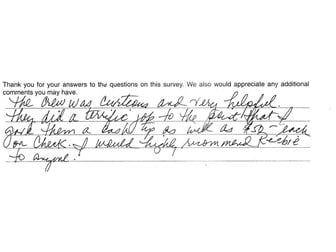 Thank you for your answers to the questions on this survey. We also would appreciate any additional
comments you may have.
The crew was curtious and very helpful.
They did a terrific job to the point that I
gave them a cash tip as well as $50- each
on check. I would highly recommend Reebie
to anyone.